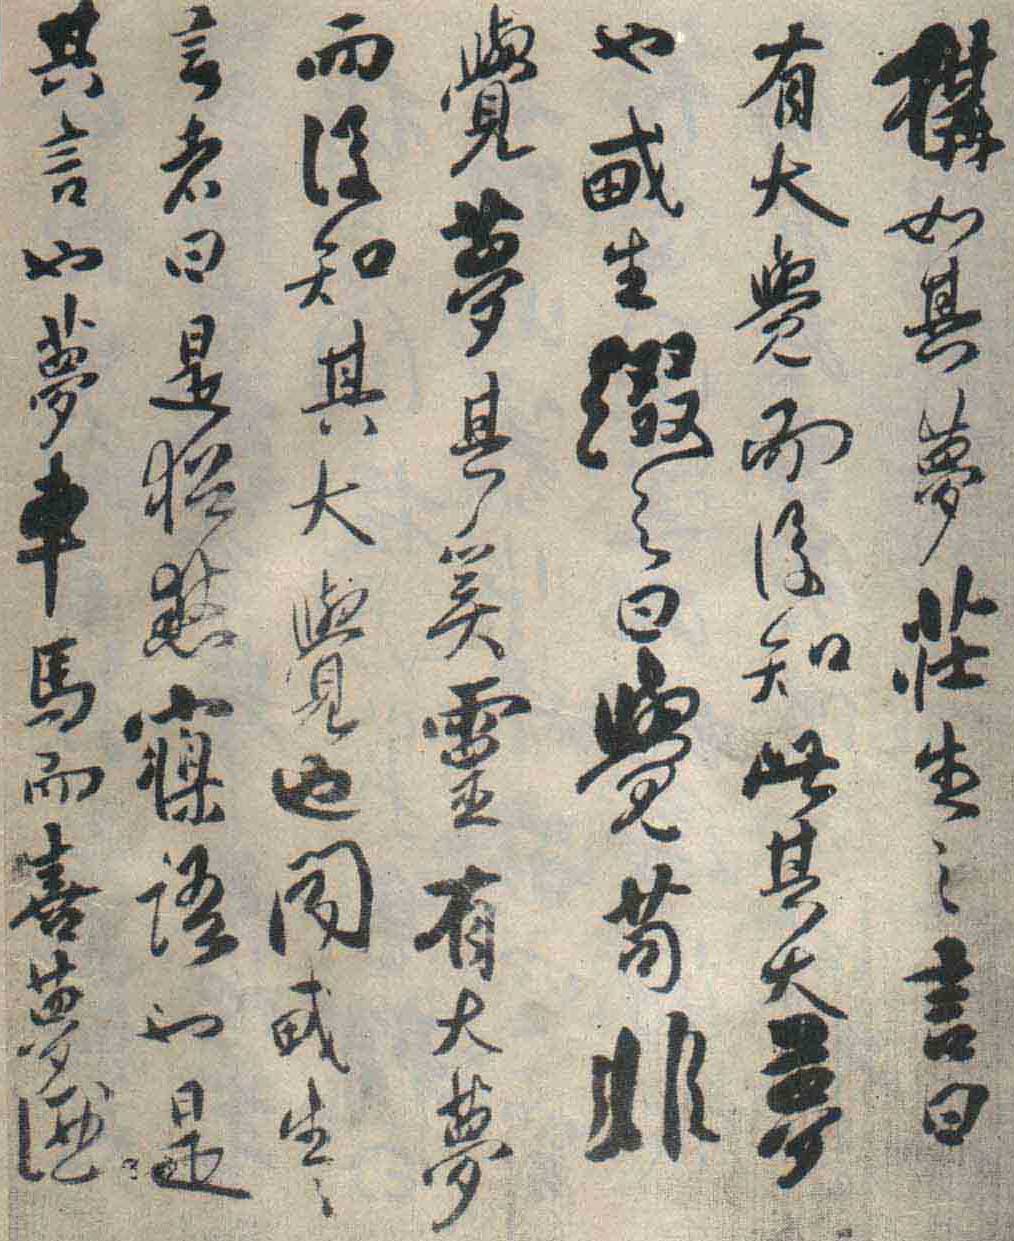 構如其夢莊生之言曰
有大覺而後知此其大夢
也生綴之曰覺苟非
覺夢其奚靈有大夢
而後知其大覺也聞生之
言者曰是猶寱語也是
其言也夢車馬而喜夢